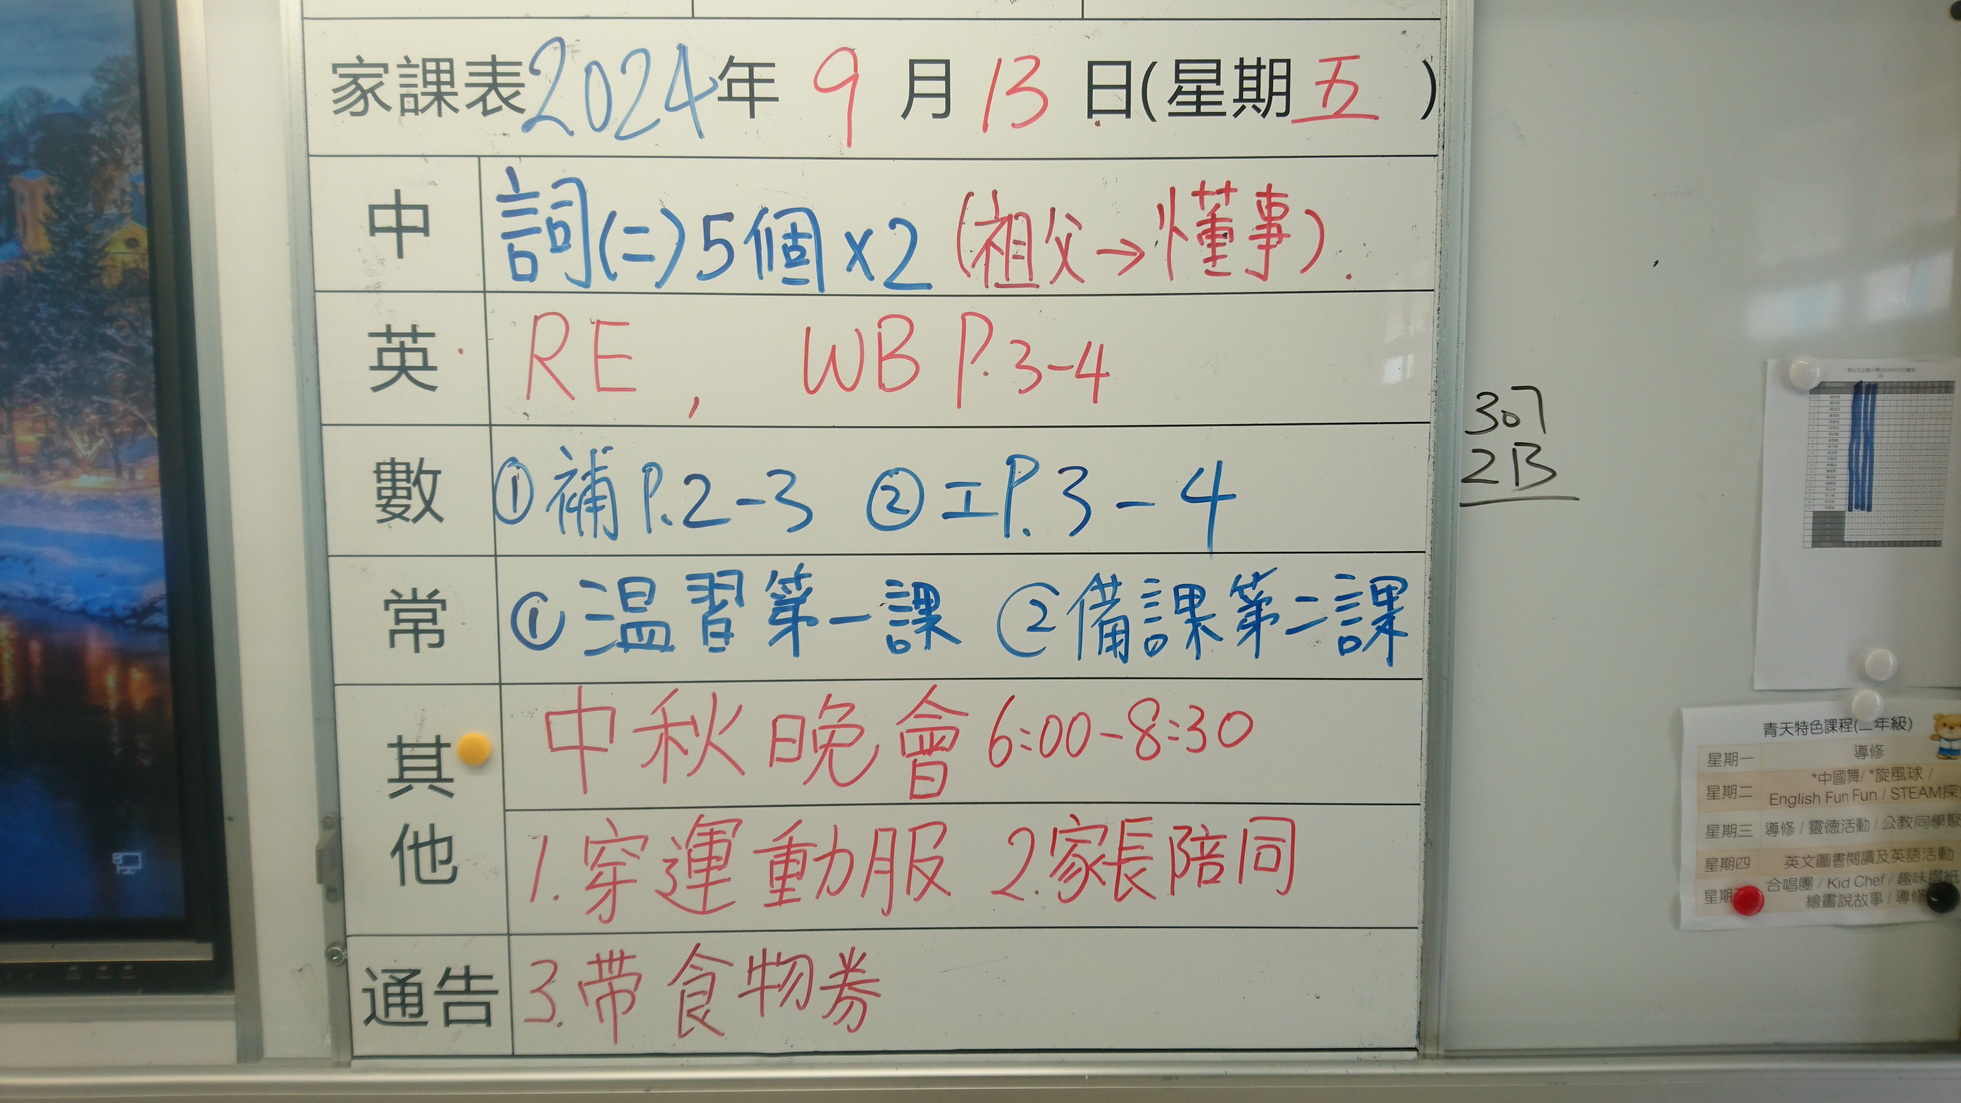 家課表2024年 9 月 13 日(星期 五 )
中 詞(二)5個×2 (祖父→懂事).
英 RE, WB P.3-4
數 ①補P.2-3 ②工P.3-4
常 ①温習第一課 ②備課第二課
其他 中秋晚會 6:00-8:30
1.穿運動服 2.家長陪同
通告 3.帶食物券
307
2B
青天特色課程(二年級)
星期一 導修
星期二 *中國舞/ *旋風球 /
English Fun Fun / STEAM探
星期三 導修 / 靈德活動 / 公教同學
星期四 英文圖書閱讀及英語活動
星期 合唱團 / Kid Chef / 趣味摺紙
繪畫說故事 / 導修